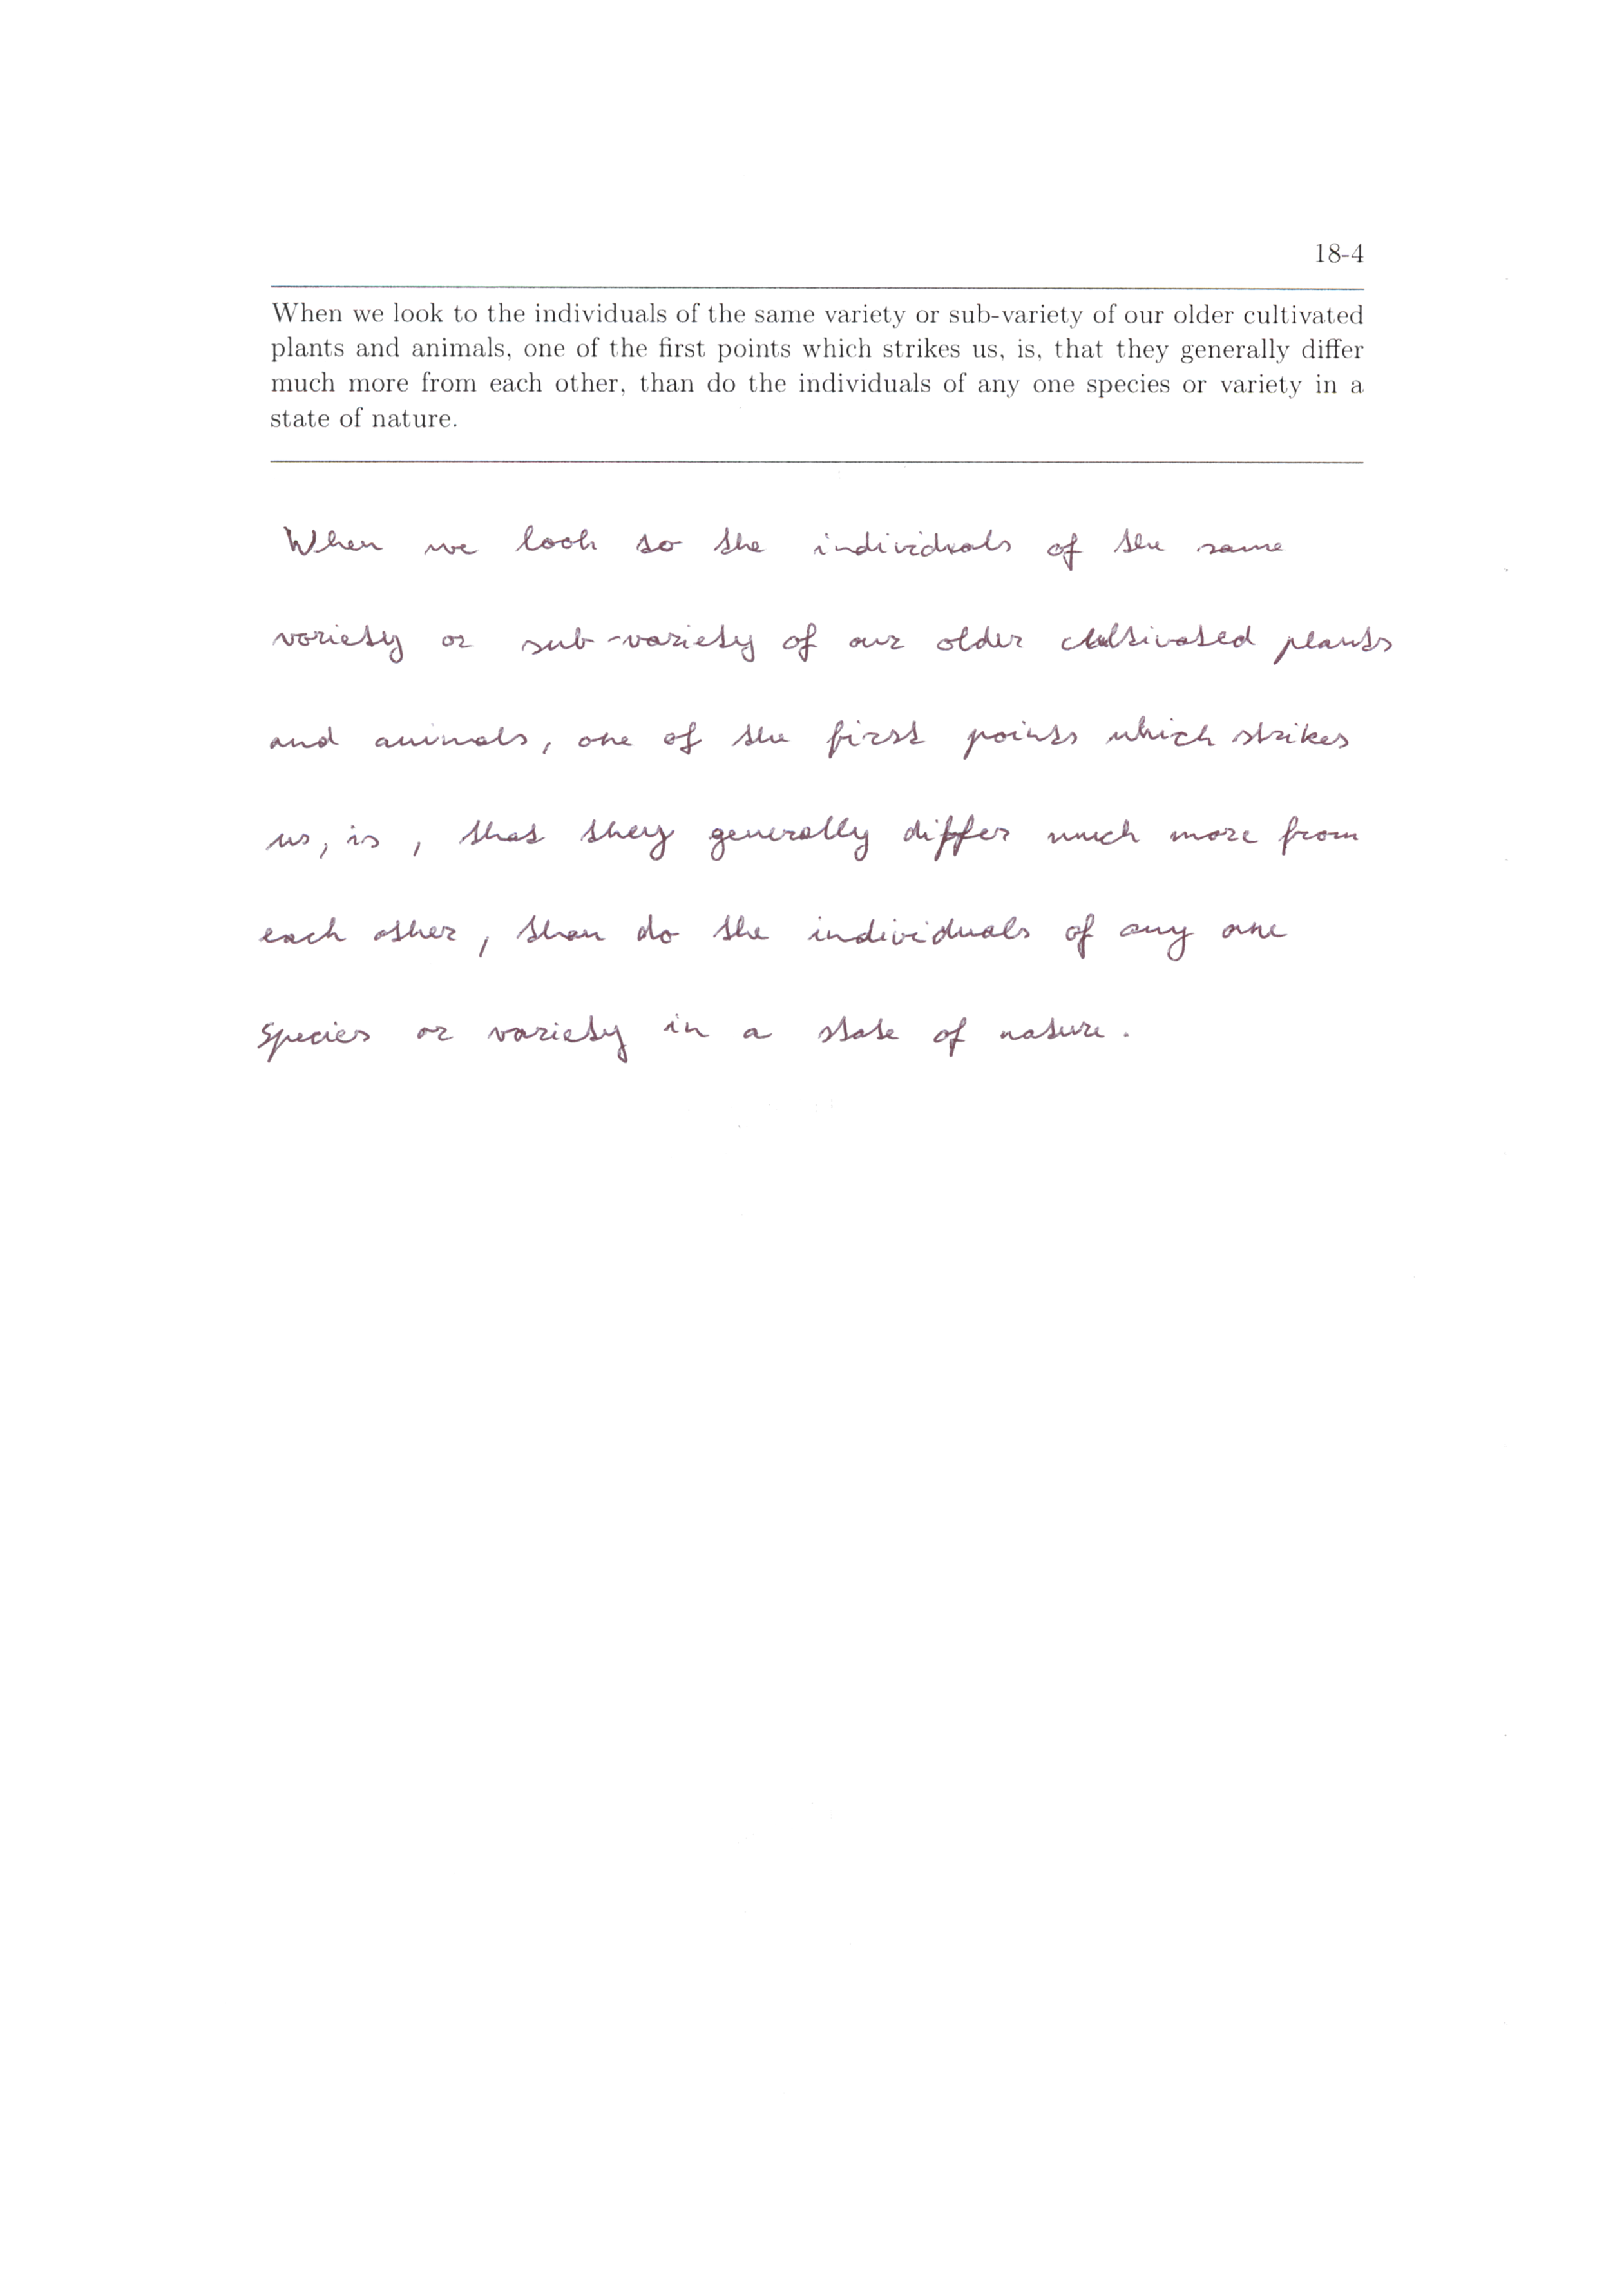 18-4
When we look to the individuals of the same variety or sub-variety of our older cultivated
plants and animals, one of the first points which strikes us, is, that they generally differ
much more from each other, than do the individuals of any one species or variety in a
state of nature.
When we look to the individuals of the same
variety or sub-variety of our older cultivated plants
and animals, one of the first points which strikes
us, is, that they generally differ much more from
each other, than do the individuals of any one
species or variety in a state of nature.